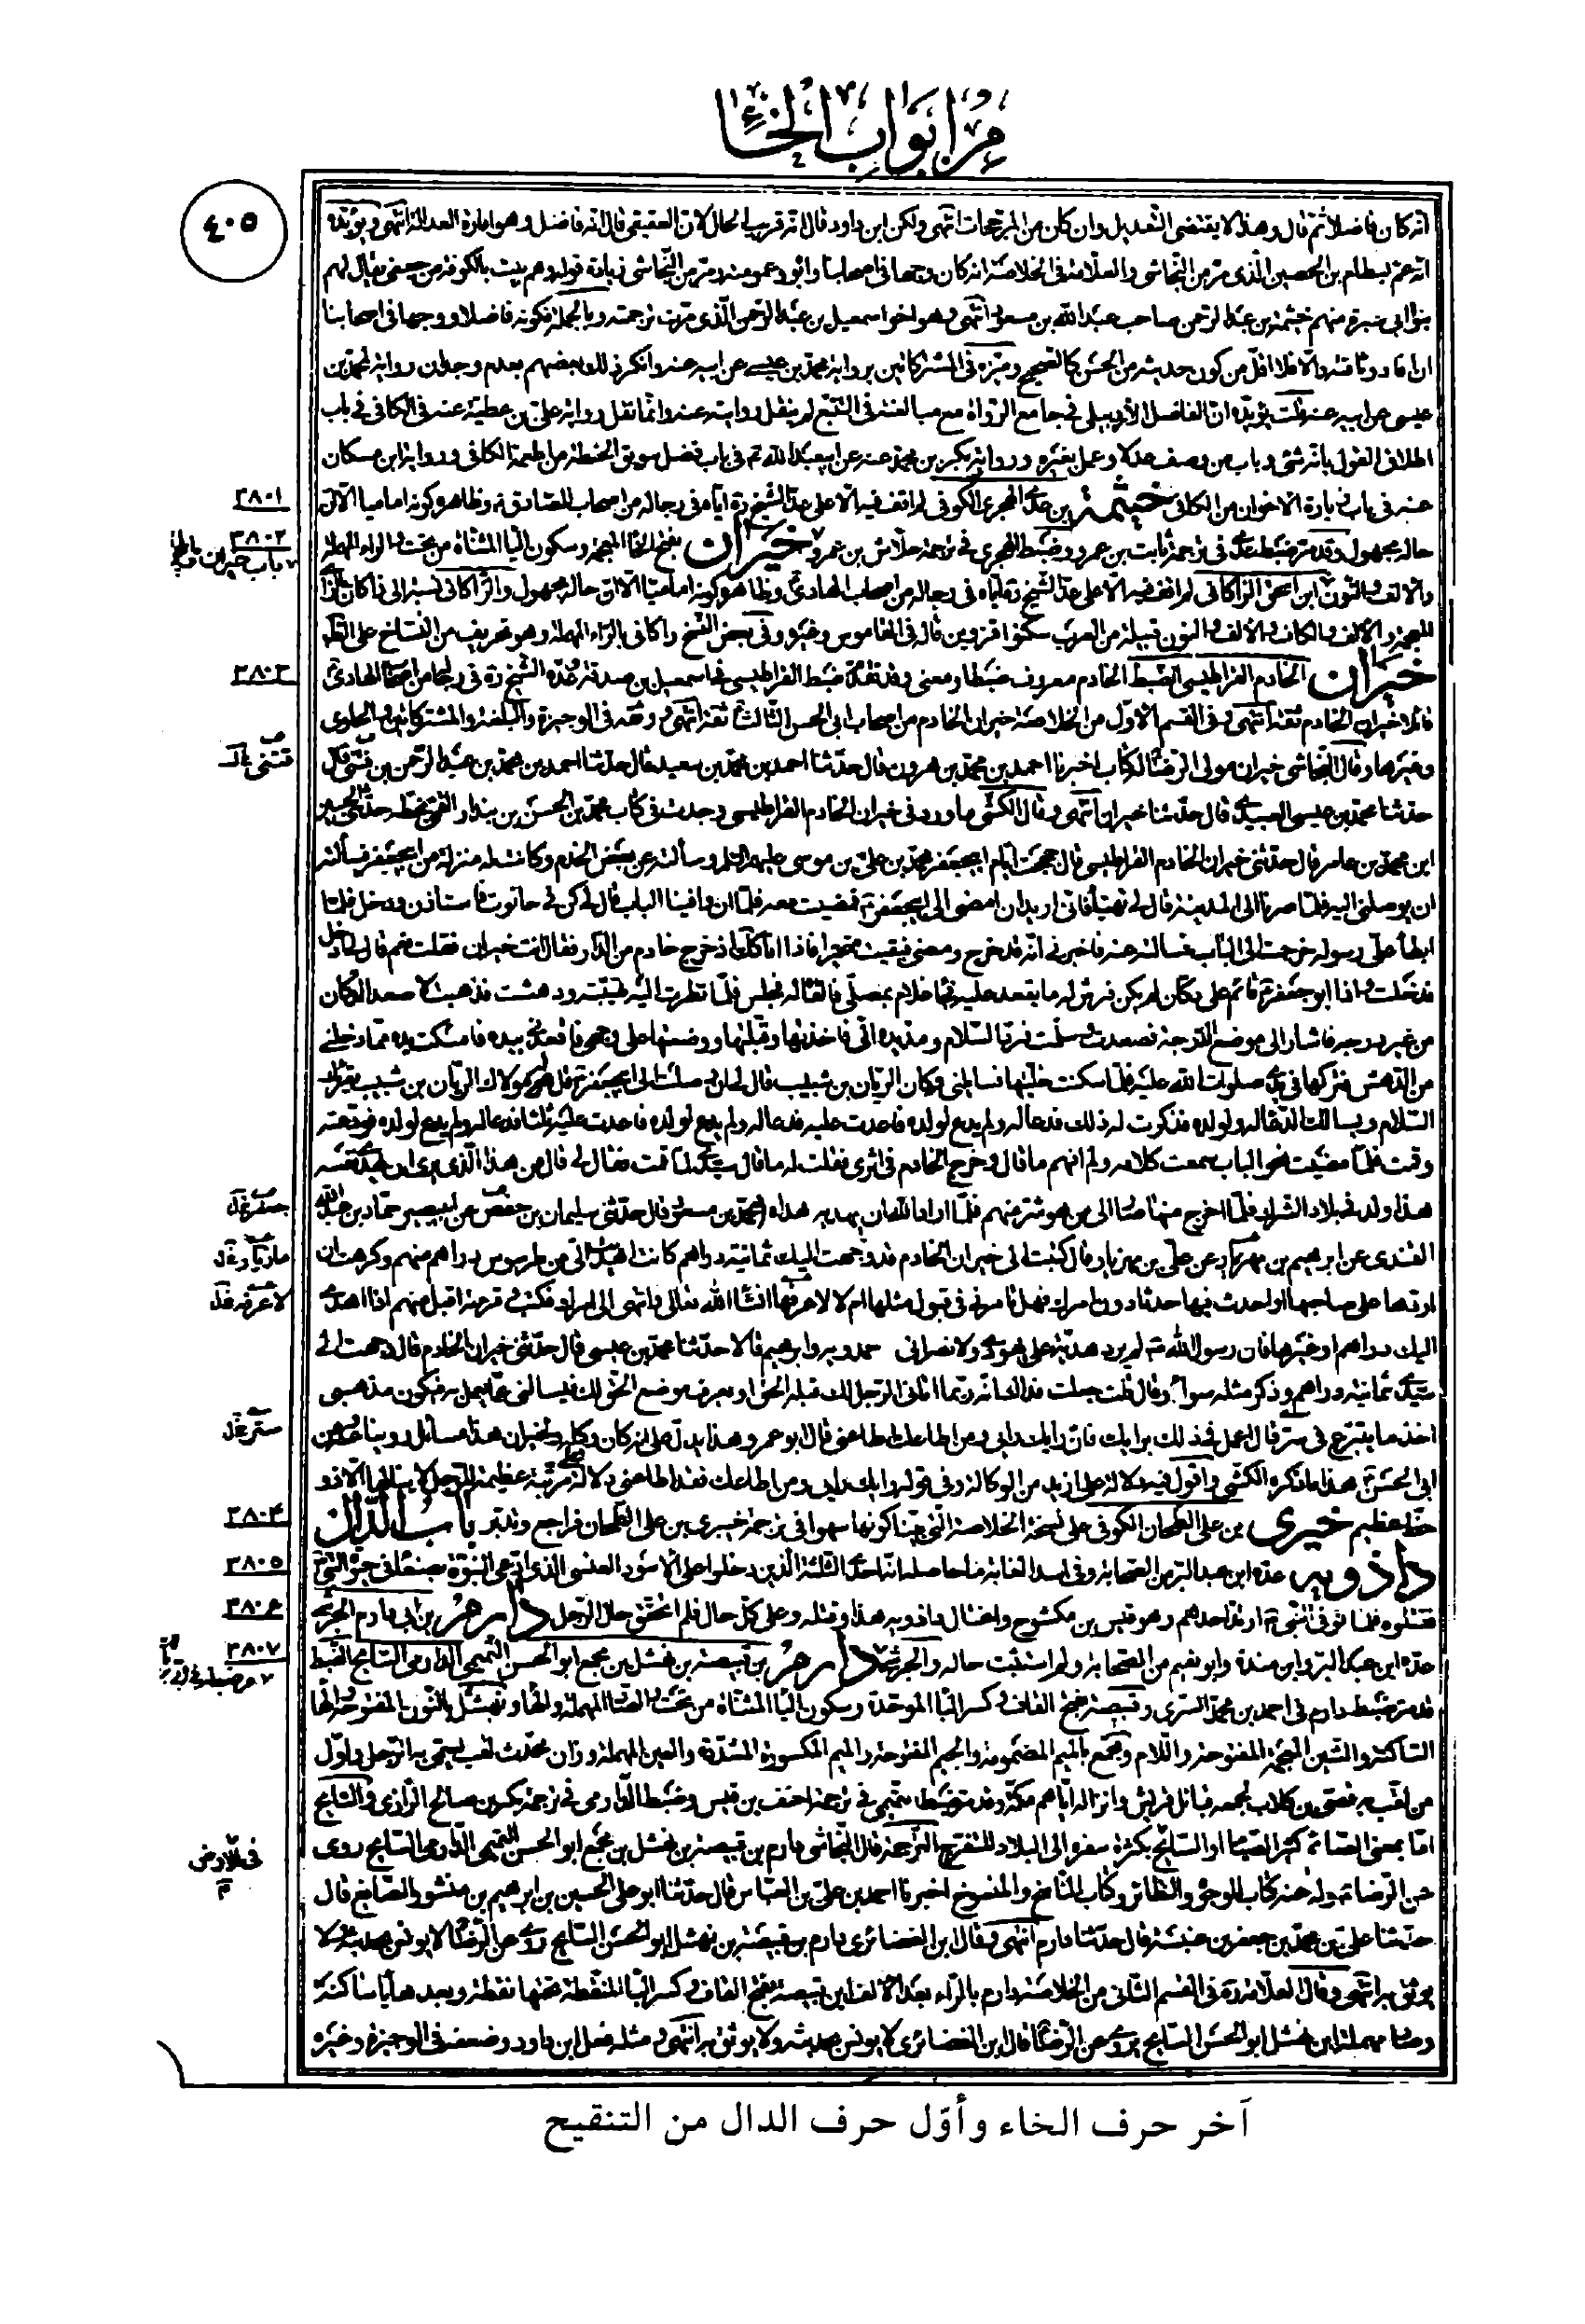 من أبواب الخاء
٤٠٥
انه كان فاضلا ثم قال وهذا لا يقتضى التعديل وان كان من المرجحات انتهى ولكن ابن داود قال انه قريب الحال لان العقيقى قال انه فاضل وهو امارة العدالة انتهى ويؤيده
انه عم بسطام بن الحصين الذى مر من النجاشى والعلامة فى الخلاصة انه كان وجها فى اصحابنا وابوه وعمومته ومر من النجاشى زيادة قوله وهم بيت بالكوفة من جعفى يقال لهم
بنو ابى سبرة منهم خيثمة بن عبد الرحمن صاحب عبد الله بن مسعود انتهى وهو اخو اسمعيل بن عبد الرحمن الذى مرت ترجمته وبالجملة فكونه فاضلا ووجها فى اصحابنا
ان افاد وثاقته والا فلا اقل من كون حديثه من الحسن كالصحيح وميزه فى المشتركاتين برواية محمد بن عيسى عن ابيه عنه وانكر ذلك بعضهم بعدم وجدان رواية لمحمد بن
عيسى عن ابيه عنه قلت يؤيده ان الفاضل الأردبيلى فى جامع الرواة مع مبالغته فى التتبع لم ينقل روايته عنه وانما نقل رواية على بن عطية عنه فى الكافى فى باب
اطلاق القول بانه شئ وباب من وصف عدلا وعمل بغيره ورواية بكر بن محمد عنه عن ابيعبد الله ع فى باب فضل سويق الحنطة من اطعمة الكافى ورواية ابن مسكان
عنه فى باب زيارة الاخوان من الكافى خيثمة بن عدى الهجرى الكوفى لم اقف فيه الا على عد الشيخ ره اياه فى رجاله من اصحاب الصادق ع وظاهره كونه اماميا الا ان
حاله مجهول وقد مر ضبط عدى فى ترجمة ثابت بن عمرو وضبط الهجرى فى ترجمة حلاش بن عمرو خيران بفتح الخاء المعجمة وسكون الياء المثناة من تحت والراء المهملة
والألف والنون ابن اسحق الزاكانى لم اقف فيه الا على عد الشيخ ره اياه فى رجاله من اصحاب الهادى ع وظاهره كونه اماميا الا ان حاله مجهول والزاكانى نسبة الى زاكان بالزاى
المعجمة والألف والكاف والألف والنون قبيلة من العرب سكنوا قزوين قاله فى القاموس وغيره وفى بعض النسخ راكانى بالراء المهملة وهو تحريف من النساخ على الظاهر
خيران الخادم القراطيسى الضبط الخادم معروف ضبطا ومعنى وقد تقدم ضبط القراطيسى فى اسمعيل بن صدقة عده الشيخ ره فى رجاله من اصحاب الهادى ع
قائلا خيران الخادم ثقة انتهى وفى القسم الأول من الخلاصة خيران الخادم من اصحاب ابى الحسن الثالث ع ثقة انتهى ووثقه فى الوجيزة والبلغة والمشتركاتين والحاوى
وغيرها وقال النجاشى خيران مولى الرضا ع له كتاب اخبرنا احمد بن محمد بن هرون قال حدثنا احمد بن محمد بن سعيد قال حدثنا احمد بن محمد بن عبد الرحمن بن فنتى قال
حدثنا محمد بن عيسى العبيدى قال حدثنا خيران انتهى وقال الكشى ما ورد فى خيران الخادم القراطيسى وجدت فى كتاب محمد بن الحسن بن بندار القمى بخطه حدثنى الحسين
ابن محمد بن عامر قال حدثنى خيران الخادم القراطيسى قال حججت ايام ابيجعفر محمد بن على بن موسى عليهم السلم وسألته عن بعض الخدم وكانت له منزلة من ابيجعفر فسألته
ان يوصلنى اليه فلما صرنا الى المدينة قال لى تهيأ فانى اريد ان امضى الى ابيجعفر ع فمضيت معه فلما ان وافينا الباب قال لى كن فى حانوت فاستاذن ودخل فلما
ابطأ على رسوله خرجت الى الباب فسالته عنه فاخبرنى انه قد خرج ومضى فبقيت متحيرا فاذا انا كذلك اذ خرج خادم من الدار فقال انت خيران فقلت نعم قال لى ادخل
فدخلت واذا ابو جعفر ع قائم على دكان لم يكن فرش له ما يقعد عليه فجاء غلام بمصلى فالقاه له فجلس فلما نظرت اليه تهيبته ودهشت فذهبت لاصعد الدكان
من غير درجة فاشار الى موضع الدرجة فصعدت وسلمت فرد السلام ومد يده الى فاخذتها وقبلتها ووضعتها على وجهى فاقعدنى بيده فامسكت يده مما دخلنى
من الدهش فتركها فى يدى صلوات الله عليه فلما سكنت خليتها فسائلنى وكان الريان بن شبيب قال لى ان وصلت الى ابيجعفر ع قل له مولاك الريان بن شبيب يقرء عليك
السلام ويسالك الدعاء له ولولده فذكرت له ذلك فدعا له ولم يدع لولده فاعدت عليه فدعا له ولم يدع لولده فاعدت عليه ثلثا فدعا له ولم يدع لولده فودعته
وقمت فلما مضيت نحو الباب سمعت كلامه ولم افهم ما قال وخرج الخادم فى اثرى فقلت له ما قال سيدى لما قمت فقال لى قال من هذا الذى يرى ان يهدى نفسه
هذا ولد فى بلاد الشرك فلما اخرج منها صار الى من هو شر منهم فلما اراد الله ان يهديه هداه محمد بن مسعود قال حدثنى سليمان بن حفص عن ابيبصير حماد بن عبد الله
القندى عن ابرهيم بن مهزيار عن على بن مهزيار قال كتبت الى خيران الخادم قد وجهت اليك ثمانية دراهم كانت اهديت الى من طرسوس دراهم منهم وكرهت ان
اردها على صاحبها او احدث فيها حدثا دون امرك فهل تامرنى فى قبول مثلها ام لا لاعرفها انشاء الله تعالى وانتهى الى امرك فكتب وقرءته اقبل منهم اذا اهدى
اليك دراهم او غيرها فان رسول الله ص لم يرد هدية على يهودى ولا نصرانى حمدويه وابرهيم قالا حدثنا محمد بن عيسى قال حدثنى خيران الخادم قال وجهت الى
سيدى ثمانية دراهم وذكر مثله سواء وقال قلت جعلت فداك انه ربما اتانى الرجل لك قبله الحق او يعرف موضع الحق لك فيسالنى عما يعمل به فيكون مذهبى
اخذ ما يتبرع فى سر قال اعمل فى ذلك برايك فان رايك رايى ومن اطاعك اطاعنى قال ابو عمرو هذا يدل على انه كان وكيله ولخيران هذا مسائل رويناها عنه وعن
ابى الحسن ع هذا ما ذكره الكشى واقول فيه دلالة على ازيد من الوكالة وفى قوله رايك رايى ومن اطاعك فقد اطاعنى دلالة على مرتبة عظيمة للرجل لا ينالها الا ذو
حظ عظيم خيرى بن على الطحان الكوفى على نسخة الخلاصة التى بينا كونها سهوا فى ترجمة خيبرى بن على الطحان فراجع وتدبر باب الدال
داذويه عده ابن عبد البر من الصحابة وفى اسد الغابة ما حاصله انه احد الثلثة الذين دخلوا على الأسود العنسى الذى ادعى النبوة بصنعاء فى حيوة النبى ص
فقتلوه فلما توفى النبى ص ارتد احدهم وهو قيس بن مكشوح واغتال داذويه هذا وقتله وعلى كل حال فلم اتحقق حال الرجل دارم بن ابى دارم الجرشى
عده ابن عبد البر وابن مندة وابو نعيم من الصحابة ولم استثبت حاله دارم بن قبيصة بن نهشل بن مجمع ابو الحسن التميمى الدارمى السايح الضبط
قد مر ضبط دارم فى احمد بن محمد السرى وقبيصة بفتح القاف وكسر الباء الموحدة وسكون الياء المثناة من تحت والصاد المهملة والهاء ونهشل بالنون المفتوحة والهاء
الساكنة والشين المعجمة المفتوحة واللام ومجمع بالميم المضمومة والجيم المفتوحة والميم المكسورة المشددة والعين المهملة وزان محدث لقب يسمى به الرجل واول
من لقب به قصى بن كلاب لجمعه قبائل قريش وانزاله اياهم مكة وقد مر ضبط التميمى فى ترجمة احنف بن قيس وضبط الدارمى فى ترجمة بكر بن صالح الرازى والسايح
اما بمعنى الصائم كثير الصيام او السائح بكثرة سفره الى البلاد للتفرج الترجمة قال النجاشى دارم بن قبيصة بن نهشل بن مجمع ابو الحسن التميمى الدارمى السايح روى
عن الرضا ع وله عنه كتاب الوجوه والنظائر وكتاب الناسخ والمنسوخ اخبرنا احمد بن على بن العباس قال حدثنا ابو على الحسين بن ابرهيم بن منشور الصايغ قال
حدثنا على بن محمد بن جعفر بن عنبسة قال حدثنا دارم انتهى وقال ابن الغضائرى دارم بن قبيصة بن نهشل ابو الحسن السايح روى عن الرضا ع لا يونس بحديثه ولا
يوثق به انتهى وقال العلامة ره فى القسم الثانى من الخلاصة دارم بالراء بعد الألف ابن قبيصة بفتح القاف وكسر الباء المنقطة تحتها نقطة وبعدها ياء ساكنة
وصاد مهملة ابن نهشل ابو الحسن السايح يروى عن الرضا ع قال ابن الغضائرى لا يونس بحديثه ولا يوثق به انتهى ومثله فعل ابن داود وضعفه فى الوجيزة وغيره
٣٨٠١
٣٨٠٢
باب خيران
٣٨٠٣
فنتى
جعفر خل
مازيار خل
لاعرفه خل
سر خل
٣٨٠٤
٣٨٠٥
٣٨٠٦
٣٨٠٧
فى الأرض
م
آخر حرف الخاء وأوّل حرف الدال من التنقيح